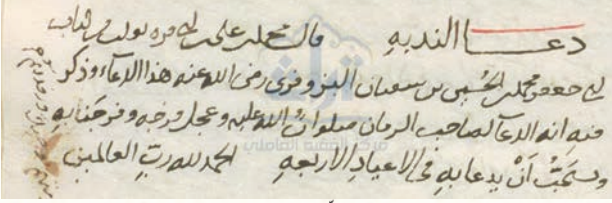 دعا الندبه قال محمد بن علي بن ابي قره نقلت من كتاب
ابي جعفر محمد بن الحسين بن سفيان البزوفري رضي الله عنه هذا الدعاء وذكر
فيه انه الدعا لصاحب الزمان صلوات الله عليه وعجل فرجه وفرجنا به
ويستحب أن يدعا به في الاعياد الاربعه الحمد لله رب العالمين